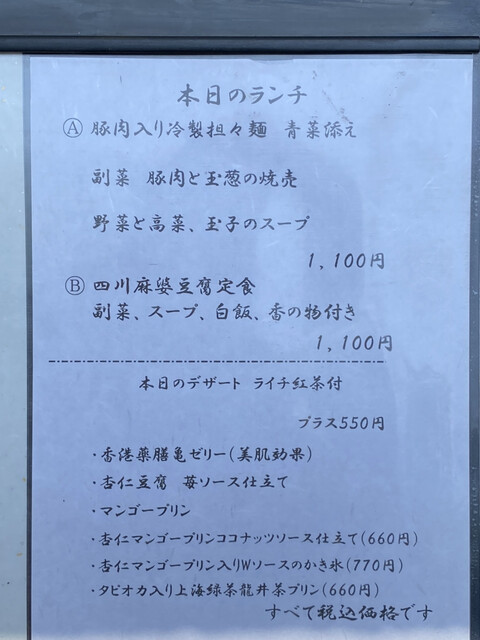 本日のランチ
Ⓐ 豚肉入り冷製担々麺 青菜添え
副菜 豚肉と玉葱の焼売
野菜と高菜、玉子のスープ
1,100円
Ⓑ 四川麻婆豆腐定食
副菜、スープ、白飯、香の物付き
1,100円
本日のデザート ライチ紅茶付
プラス550円
・香港薬膳亀ゼリー(美肌効果)
・杏仁豆腐 苺ソース仕立て
・マンゴープリン
・杏仁マンゴープリンココナッツソース仕立て(660円)
・杏仁マンゴープリン入りWソースのかき氷(770円)
・タピオカ入り上海緑茶龍井茶プリン(660円)
すべて税込価格です